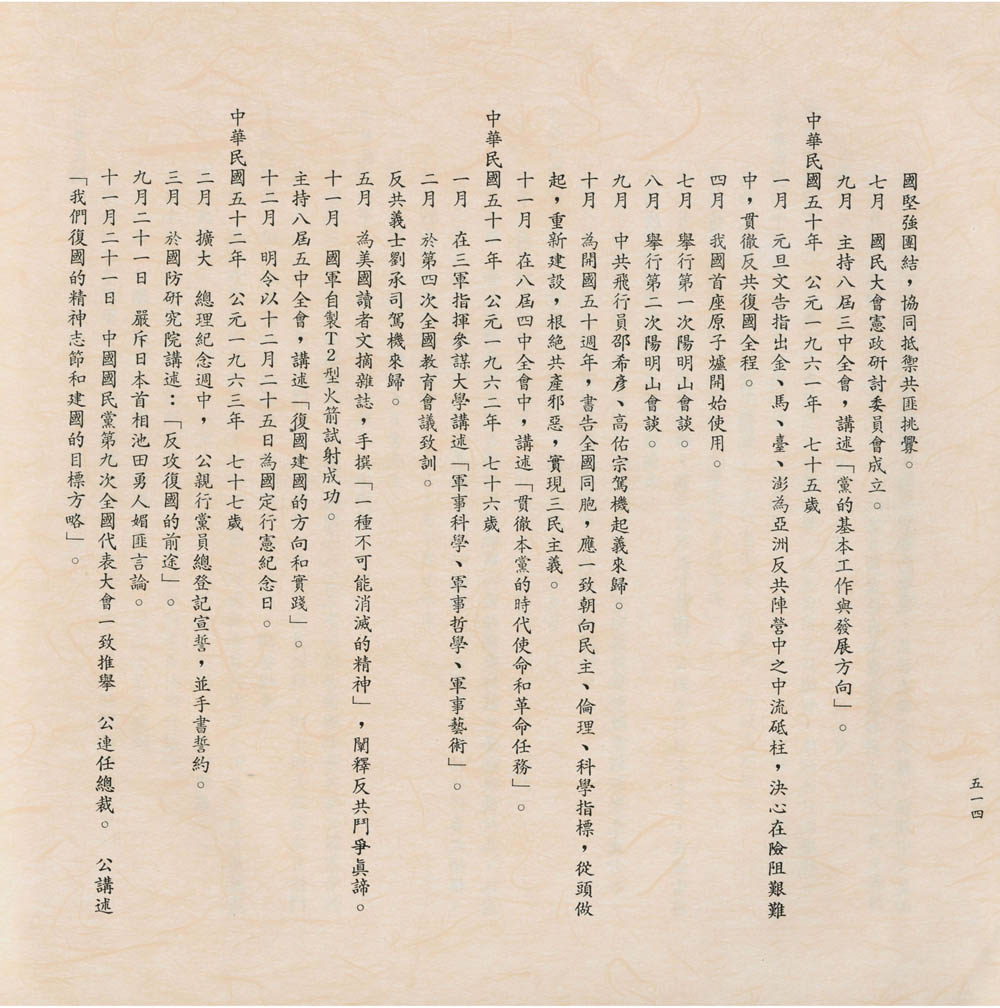 國堅強團結，協同抵禦共匪挑釁。
七月　國民大會憲政研討委員會成立。
九月　主持八屆三中全會，講述「黨的基本工作與發展方向」。
中華民國五十年　公元一九六一年　七十五歲
一月　元旦文告指出金、馬、臺、澎為亞洲反共陣營中之中流砥柱，決心在險阻艱難
中，貫徹反共復國全程。
四月　我國首座原子爐開始使用。
七月　舉行第一次陽明山會談。
八月　舉行第二次陽明山會談。
九月　中共飛行員邵希彥、高佑宗駕機起義來歸。
十月　為開國五十週年，書告全國同胞，應一致朝向民主、倫理、科學指標，從頭做
起，重新建設，根絕共產邪惡，實現三民主義。
十一月　在八屆四中全會中，講述「貫徹本黨的時代使命和革命任務」。
中華民國五十一年　公元一九六二年　七十六歲
一月　在三軍指揮參謀大學講述「軍事科學、軍事哲學、軍事藝術」。
二月　於第四次全國教育會議致訓。
反共義士劉承司駕機來歸。
五月　為美國讀者文摘雜誌，手撰「一種不可能消滅的精神」，闡釋反共鬥爭眞諦。
十一月　國軍自製T2型火箭試射成功。
主持八屆五中全會，講述「復國建國的方向和實踐」。
十二月　明令以十二月二十五日為國定行憲紀念日。
中華民國五十二年　公元一九六三年　七十七歲
二月　擴大　總理紀念週中，　公親行黨員總登記宣誓，並手書誓約。
三月　於國防研究院講述：「反攻復國的前途」。
九月二十一日　嚴斥日本首相池田勇人媚匪言論。
十一月二十一日　中國國民黨第九次全國代表大會一致推舉　公連任總裁。　公講述
「我們復國的精神志節和建國的目標方略」。
五一四